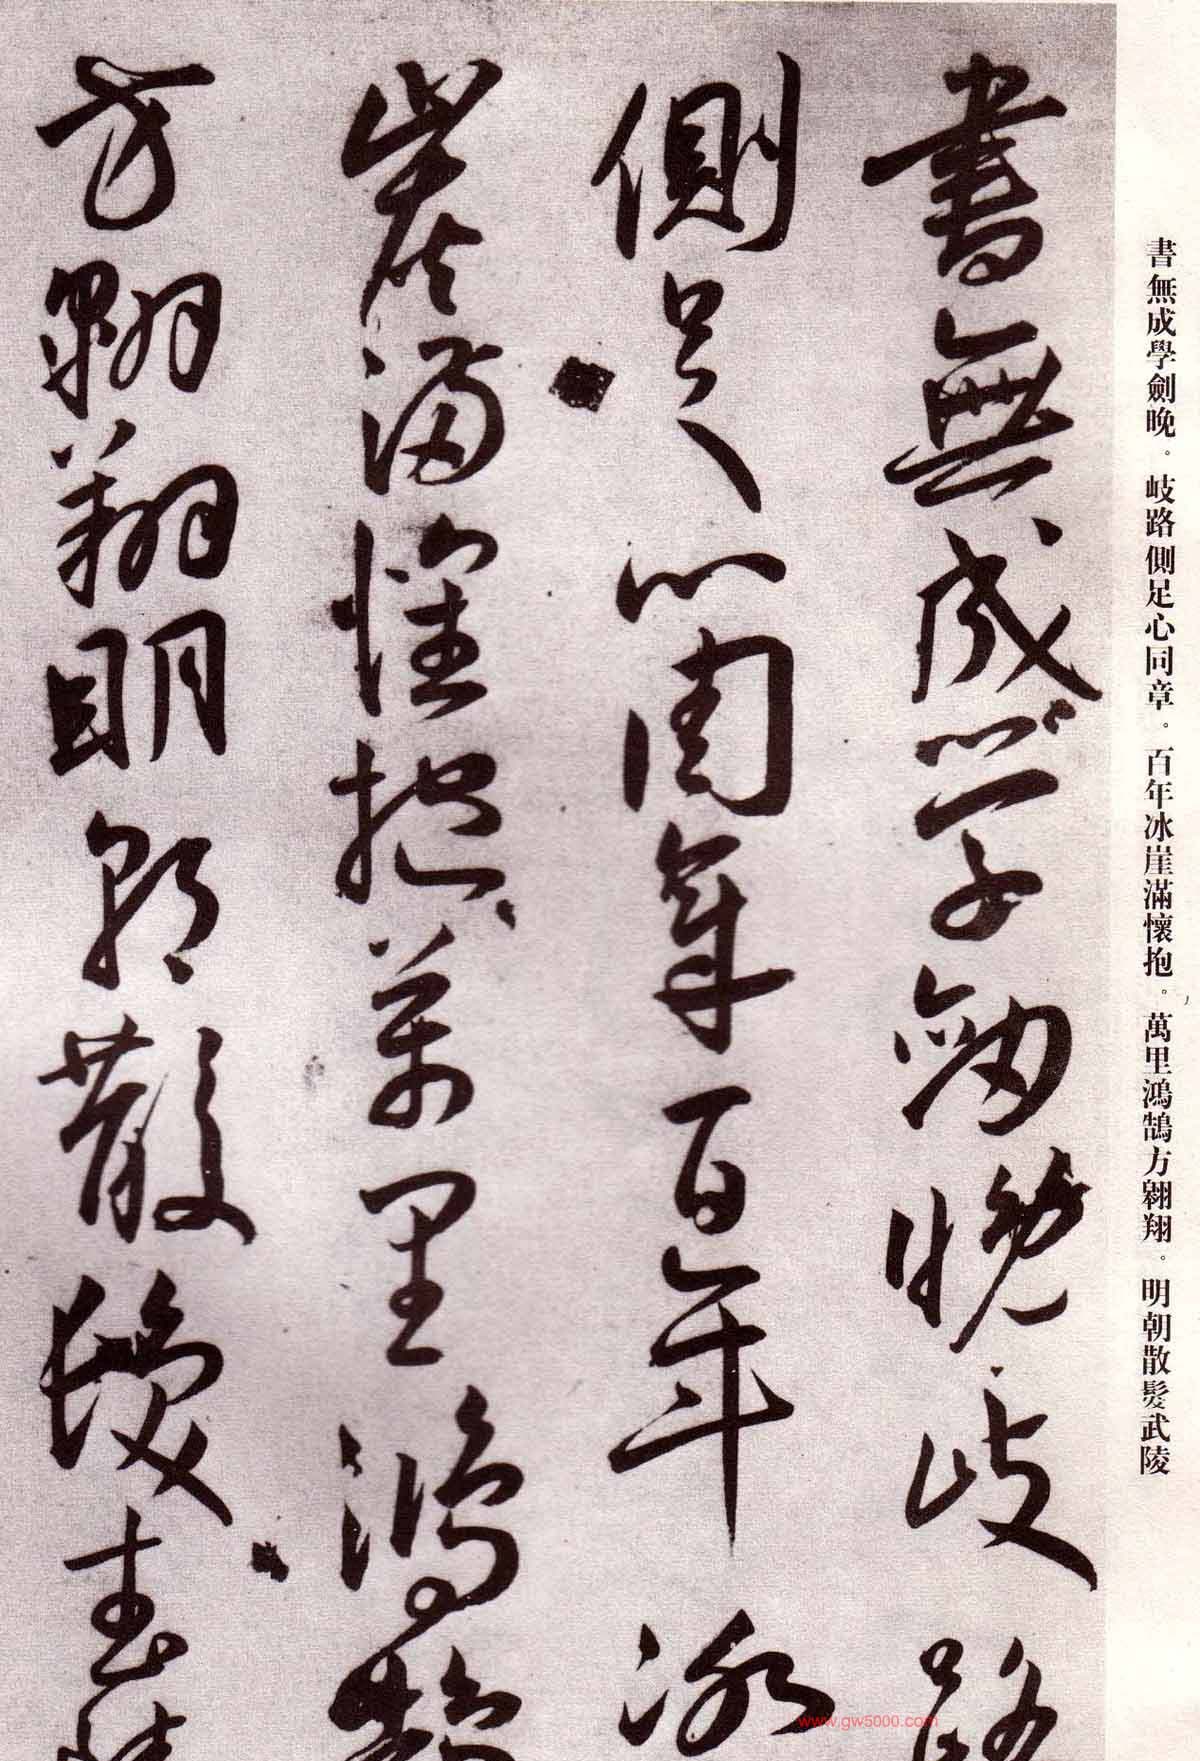 書無成學劍晚。岐路側足心同章。百年冰崖滿懷抱。萬里鴻鵠方翱翔。明朝散髮武陵
書無成學劍晚岐路
側足心周章百年冰
崖滿懷抱萬里鴻鵠
方翱翔明朝散髮武陵
www.gw5000.com